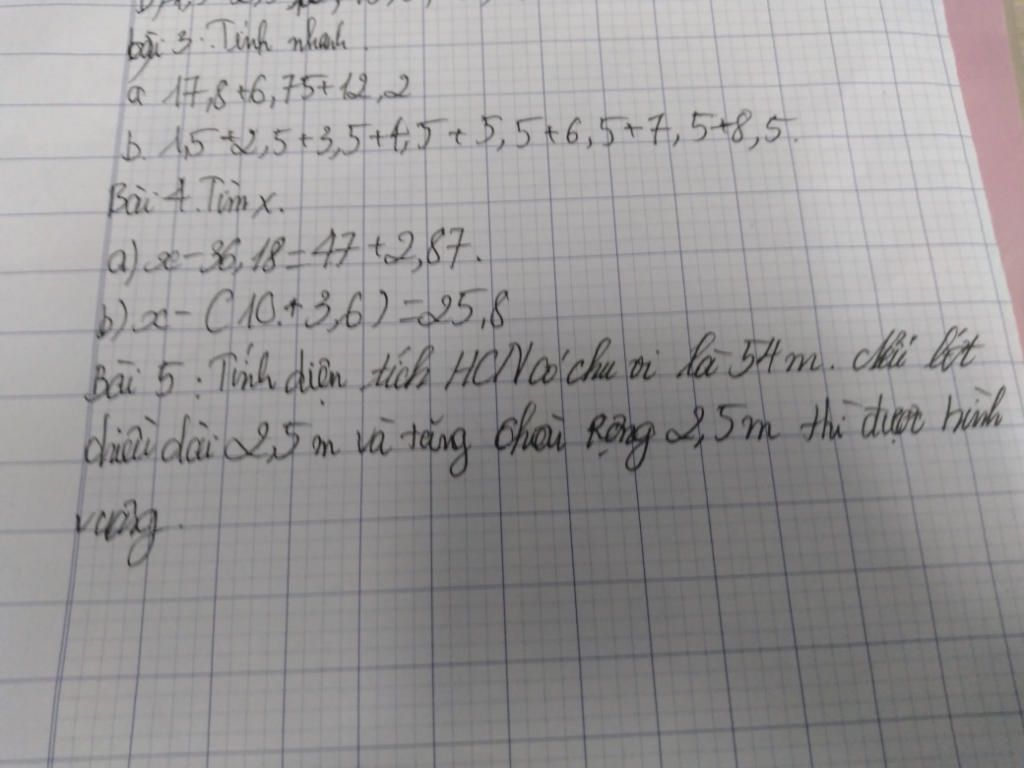 bài 3: Tính nhanh
a 17,8+6,75+12,2
b. 1,5+2,5+3,5+4,5+5,5+6,5+7,5+8,5.
Bài 4. Tìm x.
a) x-36,18=47+2,87.
b) x-(10+3,6)=25,8
Bài 5: Tính diện tích HCN có chu vi là 54m. bớt
chiều dài 2,5m và tăng chiều Rộng 2,5m thì được hình
vuông.